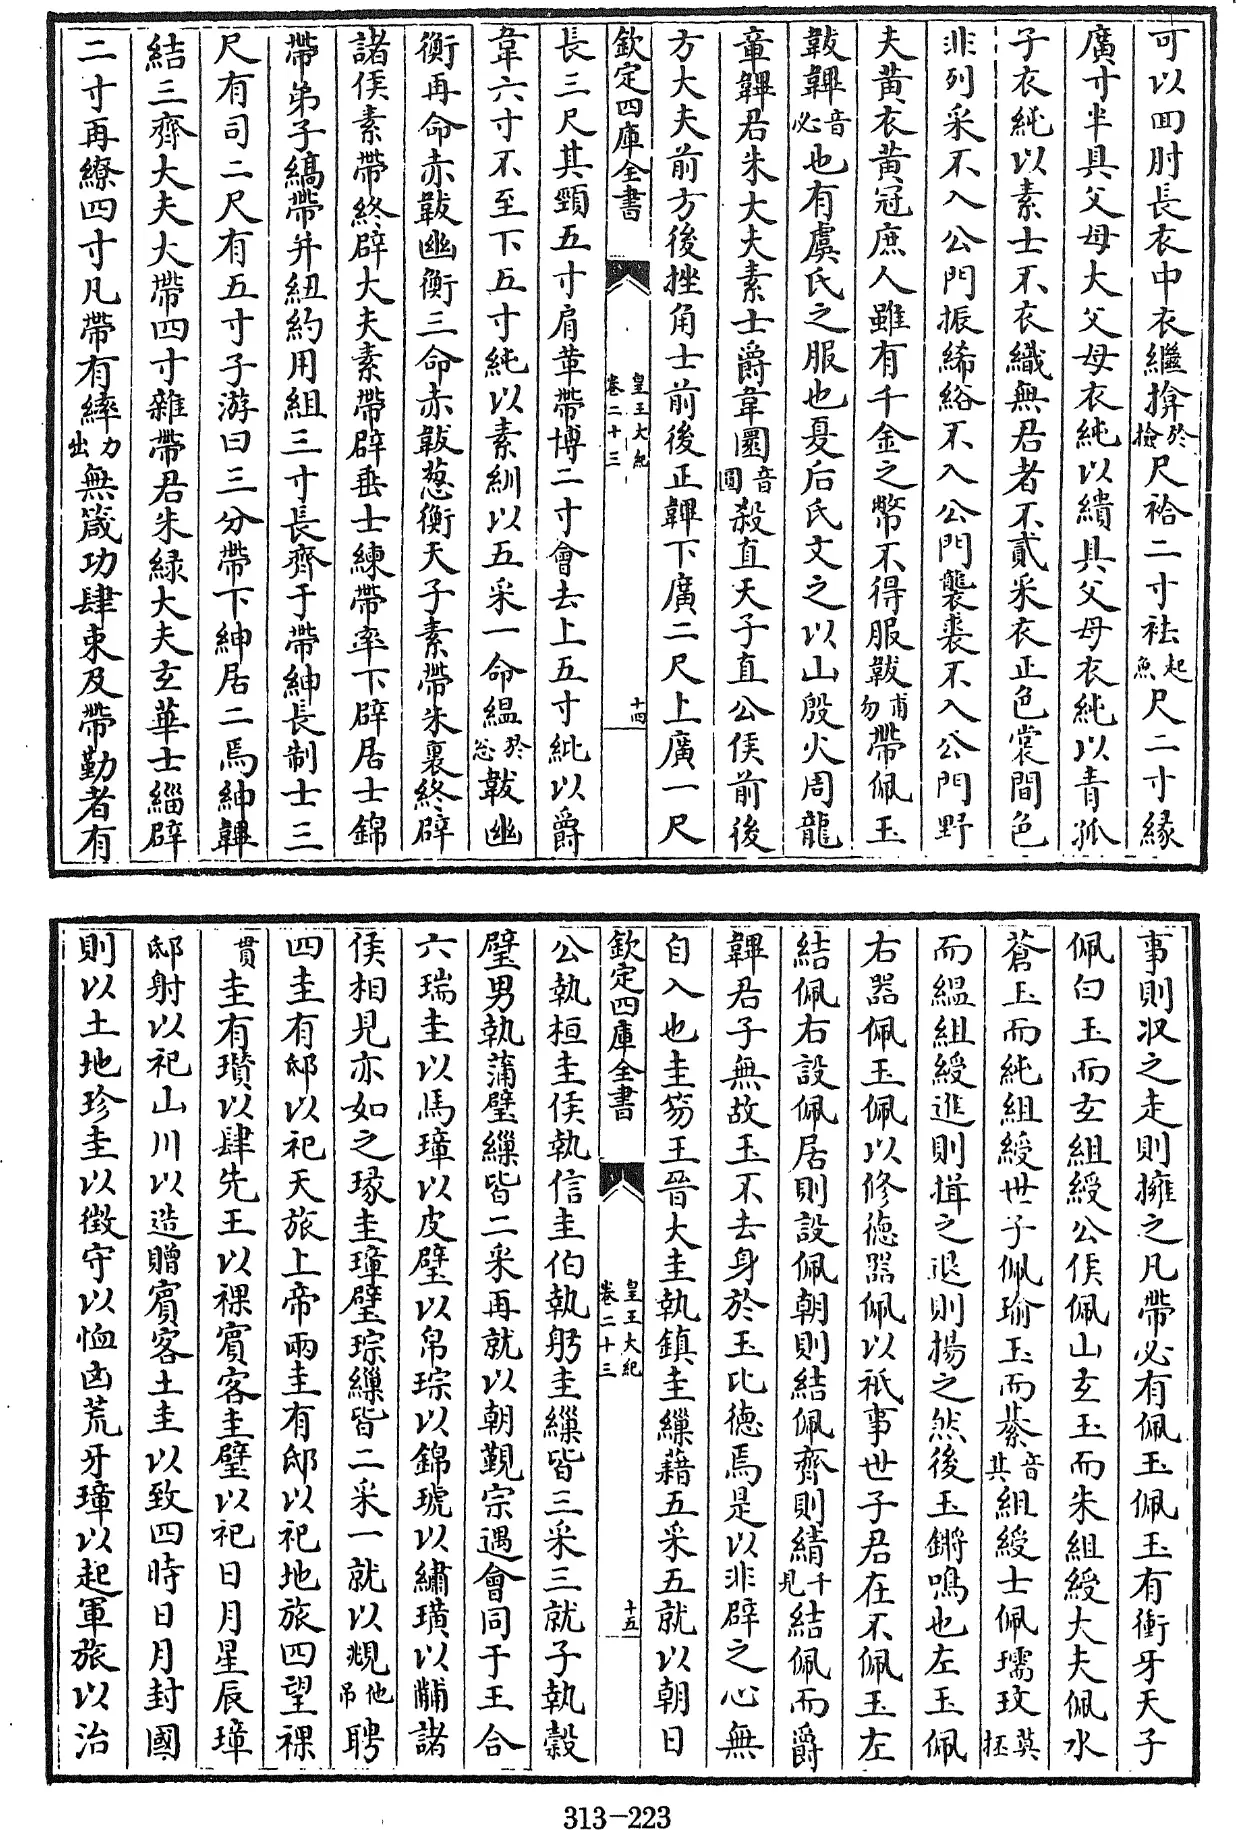 可以回肘長衣中衣繼揜於撿尺袷二寸袪起魚尺二寸緣
廣寸半具父母大父母衣純以繢具父母衣純以青孤
子衣純以素士不衣織無君者不貳采衣正色裳間色
非列采不入公門振絺綌不入公門襲裘不入公門野
夫黃衣黃冠庶人雖有千金之幣不得服韍甫勿帶佩玉
韍鞸音必也有虞氏之服也夏后氏文之以山殷火周龍
章鞸君朱大夫素士爵韋圜音圓殺直天子直公侯前後
方大夫前方後挫角士前後正鞸下廣二尺上廣一尺
欽定四庫全書
皇王大紀
卷二十三
十四
長三尺其頸五寸肩革帶博二寸會去上五寸紕以爵
韋六寸不至下五寸純以素紃以五采一命縕於忿韍幽
衡再命赤韍幽衡三命赤韍蔥衡天子素帶朱裏終辟
諸侯素帶終辟大夫素帶辟垂士練帶率下辟居士錦
帶弟子縞帶并紐約用組三寸長齊于帶紳長制士三
尺有司二尺有五寸子游曰三分帶下紳居二焉紳鞸
結三齊大夫大帶四寸雜帶君朱綠大夫玄華士緇辟
二寸再繚四寸凡帶有繂力出無箴功肆束及帶勤者有
事則収之走則擁之凡帶必有佩玉佩玉有衝牙天子
佩白玉而玄組綬公侯佩山玄玉而朱組綬大夫佩水
蒼玉而純組綬世子佩瑜玉而綦音其組綬士佩瓀玟莫抔
而縕組綬進則揖之退則揚之然後玉鏘鳴也左玉佩
右器佩玉佩以修德器佩以祇事世子君在不佩玉左
結佩右設佩居則設佩朝則結佩齊則綪千見結佩而爵
鞸君子無故玉不去身於玉比德焉是以非辟之心無
自入也圭笏王晉大圭執鎮圭繅藉五采五就以朝日
欽定四庫全書
皇王大紀
卷二十三
十五
公執桓圭侯執信圭伯執躬圭繅皆三采三就子執穀
璧男執蒲璧繅皆二采再就以朝覲宗遇會同于王合
六瑞圭以馬璋以皮璧以帛琮以錦琥以繡璜以黼諸
侯相見亦如之瑑圭璋璧琮繅皆二采一就以覜他吊聘
四圭有邸以祀天旅上帝兩圭有邸以祀地旅四望祼
貫圭有瓚以肆先王以祼賓客圭璧以祀日月星辰璋
邸射以祀山川以造贈賓客土圭以致四時日月封國
則以土地珍圭以徵守以恤凶荒牙璋以起軍旅以治
313-223